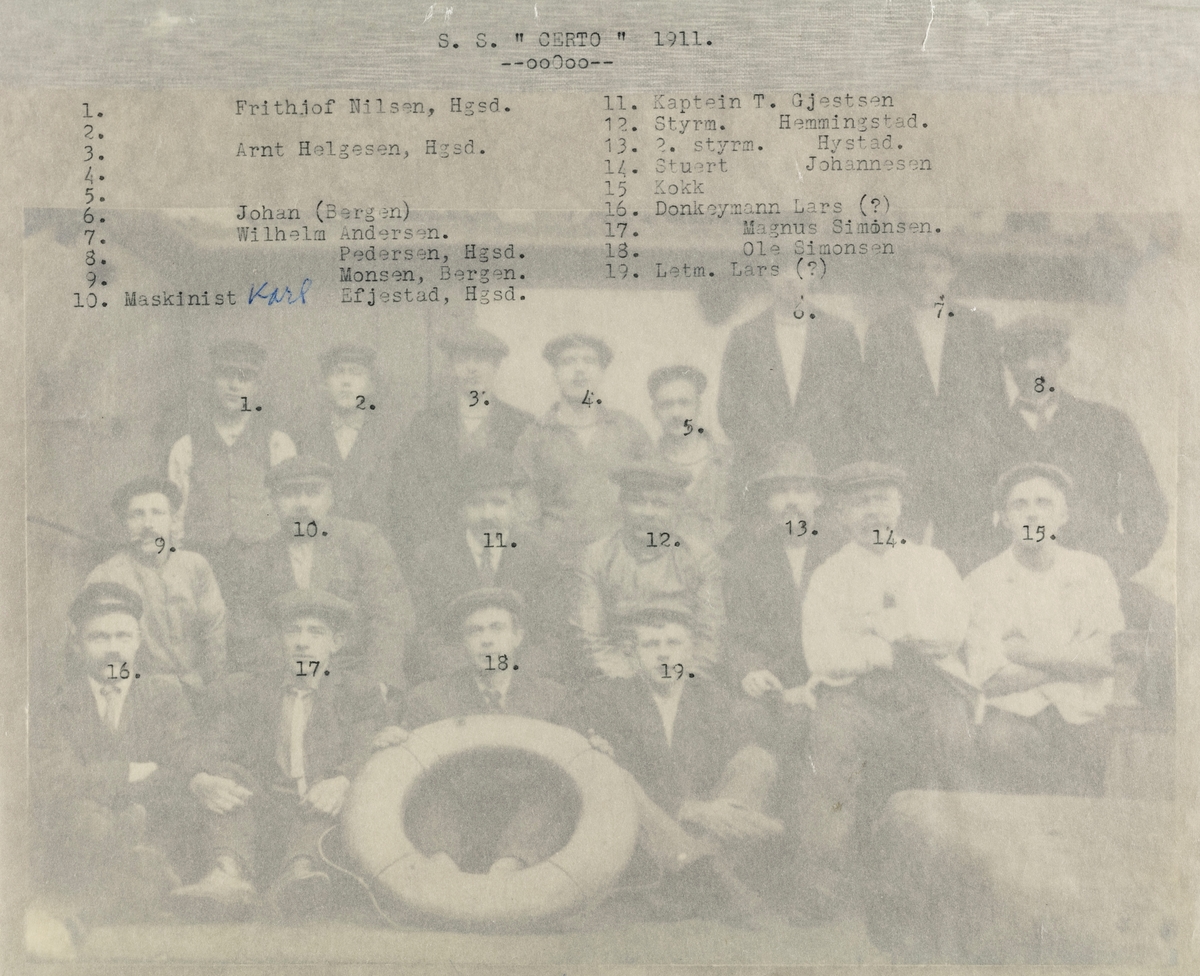 S. S. " CERTO " 1911.
--ooOoo--
1. Frithjof Nilsen, Hgsd.
2.
3. Arnt Helgesen, Hgsd.
4.
5.
6. Johan (Bergen)
7. Wilhelm Andersen.
8. Pedersen, Hgsd.
9. Monsen, Bergen.
10. Maskinist Karl Efjestad, Hgsd.
11. Kaptein T. Gjestsen
12. Styrm. Hemmingstad.
13. 2. styrm. Hystad.
14. Stuert Johannesen
15 Kokk
16. Donkeymann Lars (?)
17. Magnus Simonsen.
18. Ole Simonsen
19. Letm. Lars (?)
6. 7.
1. 2. 3. 4. 5. 8.
9. 10. 11. 12. 13. 14. 15.
16. 17. 18. 19.